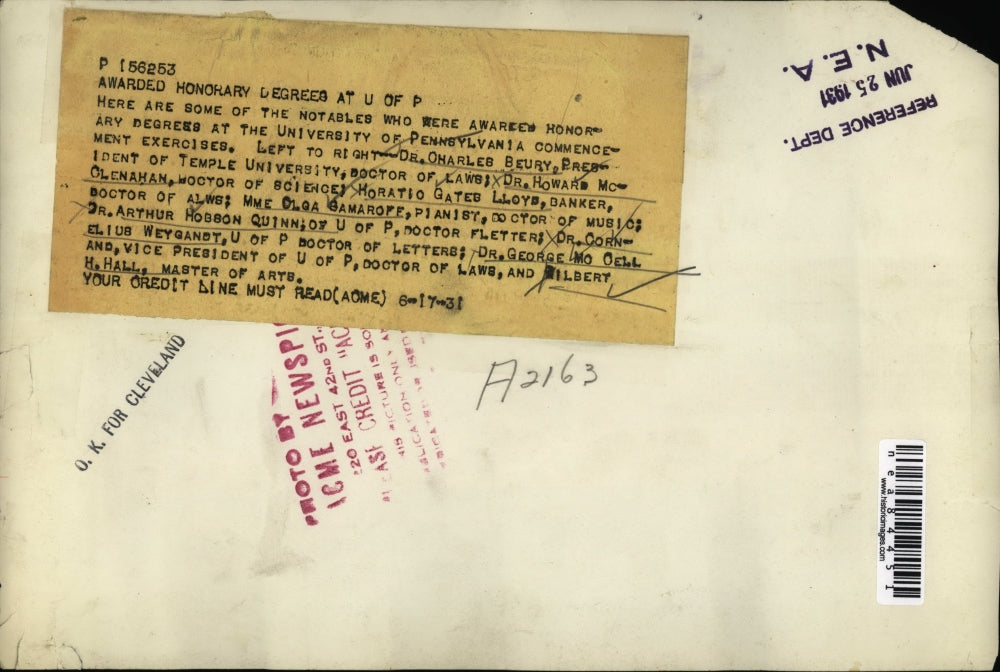 P 156253
AWARDED HONORARY DEGREES AT U OF P
HERE ARE SOME OF THE NOTABLES WHO WERE AWARDED HONOR-
ARY DEGREES AT THE UNIVERSITY OF PENNSYLVANIA COMMENCE-
MENT EXERCISES. LEFT TO RIGHT--DR. CHARLES BEURY, PRES-
IDENT OF TEMPLE UNIVERSITY, DOCTOR OF LAWS; DR. HOWARD MC-
CLENAHAN, DOCTOR OF SCIENCE; HORATIO GATES LLOYD, BANKER,
DOCTOR OF ALWS; MME OLGA SAMAROFF, PIANIST, DOCTOR OF MUSIC;
DR. ARTHUR HOBSON QUINN, OF U OF P, DOCTOR FLETTER; DR. CORN-
ELIUS WEYGANDT, U OF P DOCTOR OF LETTERS; DR. GEORGE MC CELL
AND, VICE PRESIDENT OF U OF P, DOCTOR OF LAWS, AND WILBERT
H. HALL, MASTER OF ARTS.
YOUR CREDIT LINE MUST READ (ACME) 6-17-31
N. E. A.
JUN 25 1931
REFERENCE DEPT.
O. K. FOR CLEVELAND
PHOTO BY
ACME NEWSPI
220 EAST 42ND ST.
CREDIT "AC
PICTURE IS SO
ONLY
A2163
nea84451
www.historicimages.com